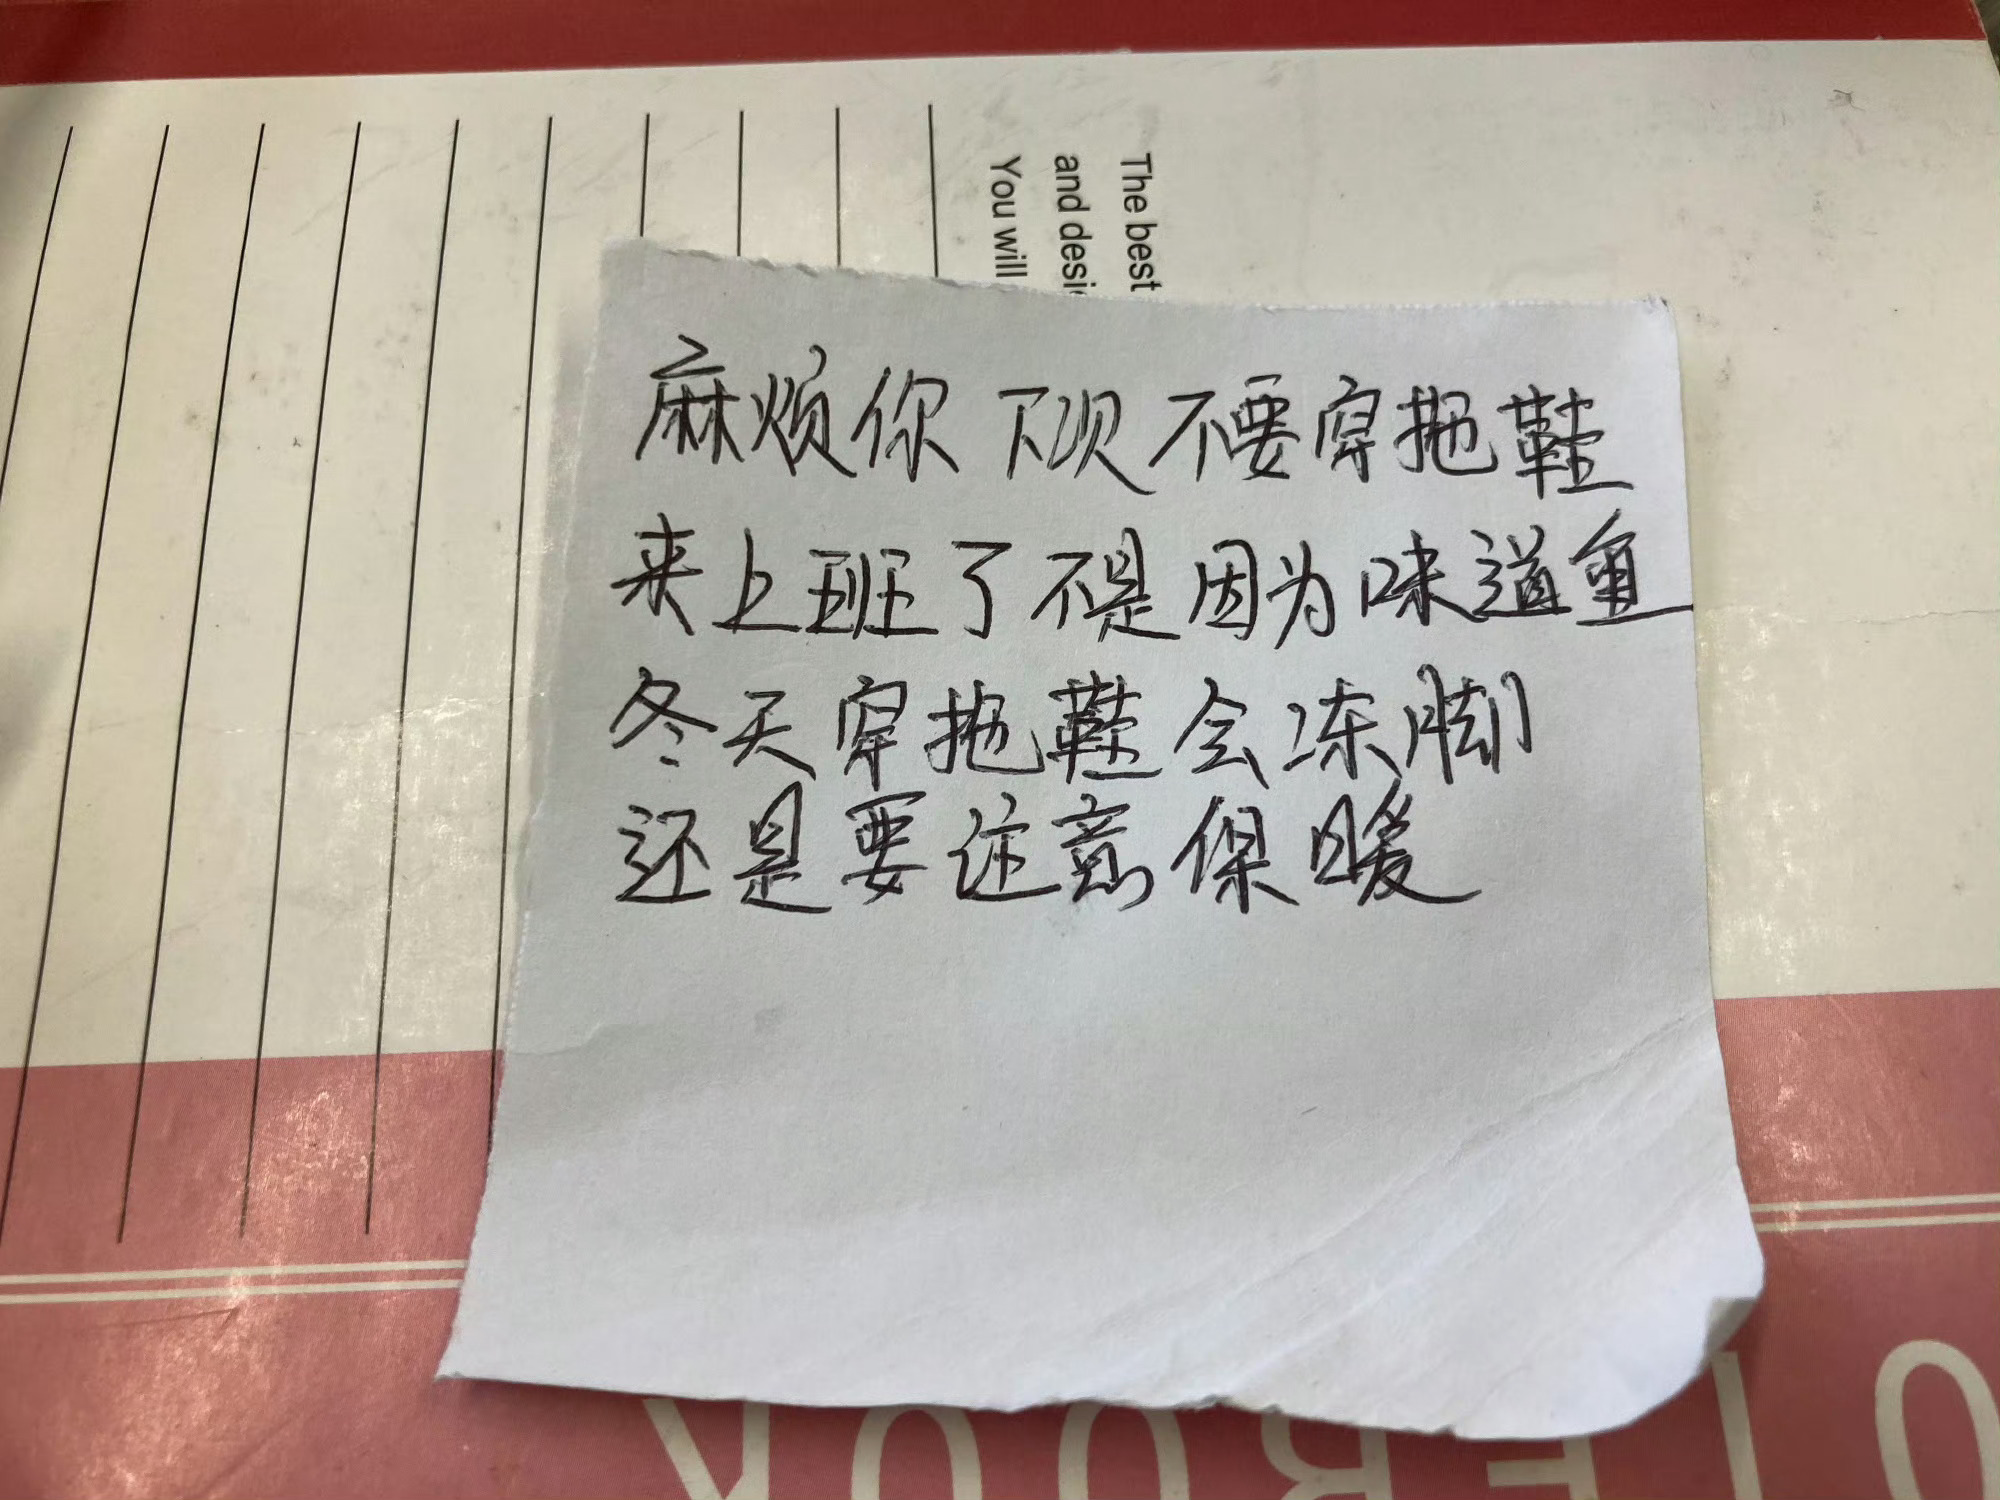 The best
and desi
You will
麻烦你下次不要穿拖鞋
来上班了不是因为味道鱼
冬天穿拖鞋会冻脚
还是要注意保暖